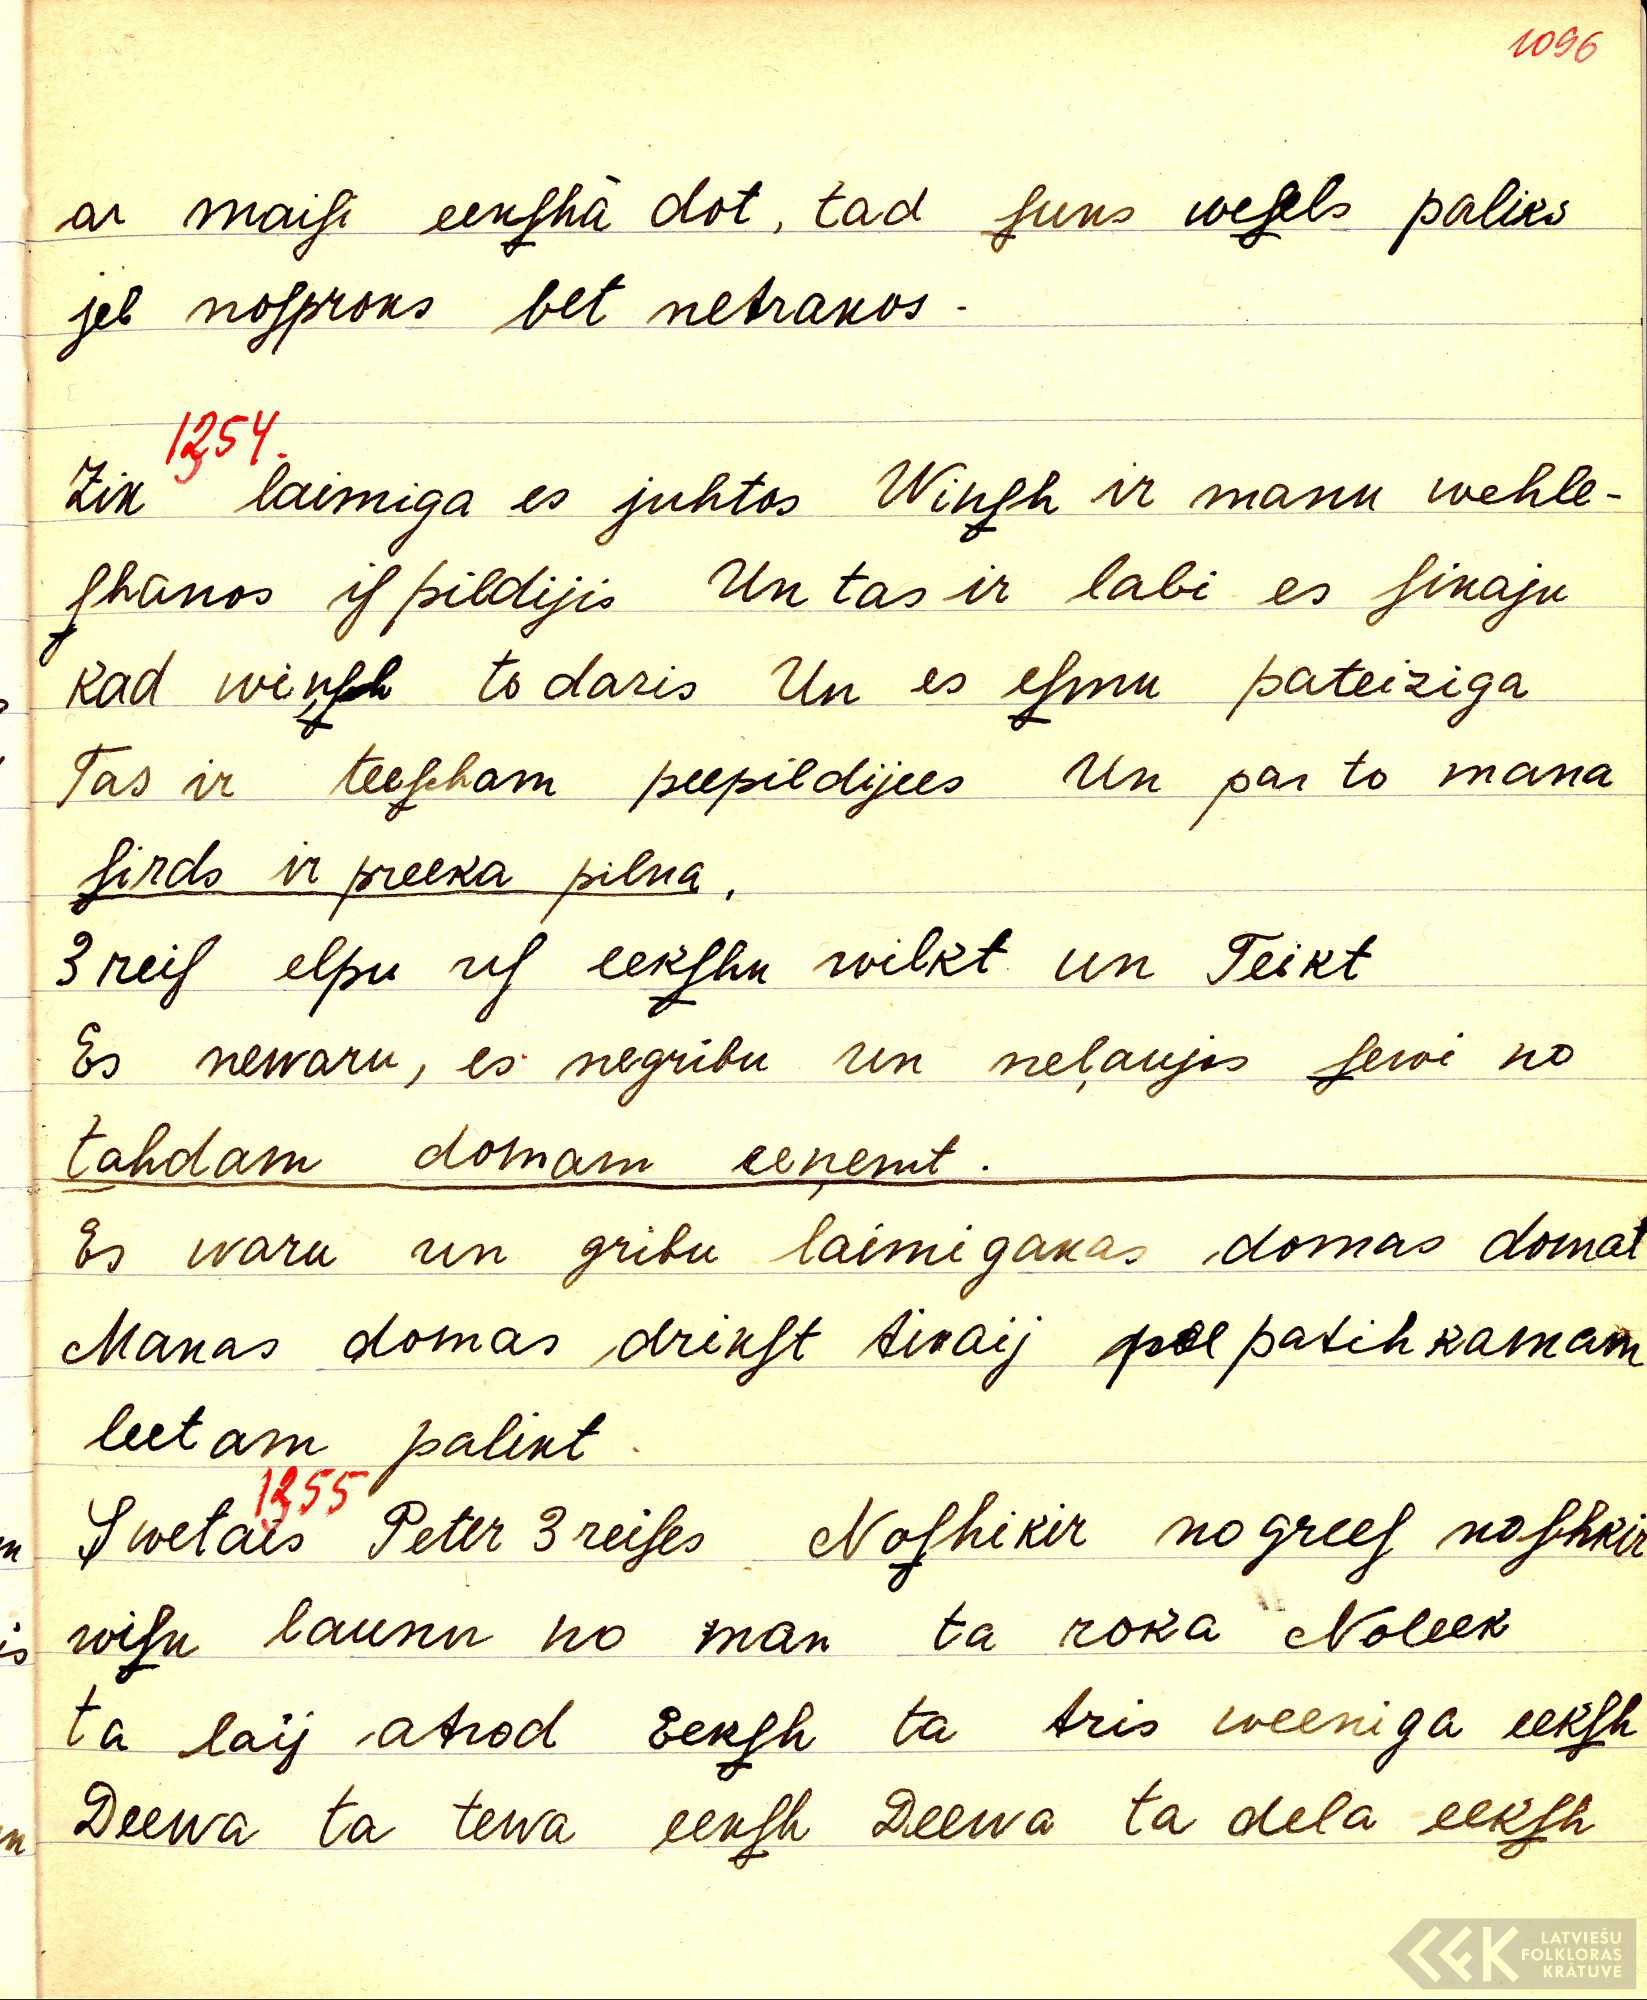 1096
ar maiſi eekſhâ dot, tad ſuns weſels paliks
jeb noſproks bet netrakos.
1254.
Zik laimiga es juhtos Winſh ir manu wehle-
ſhānos iſpildijis Un tas ir labi es ſinaju
kad winſh to daris Un es eſmu pateiziga
Tas ir teeſcham peepildijees Un par to mana
ſirds ir preeka pilna,
3 reiſ elpu uſ eekſhu wilkt un Teikt
Es newaru, es negribu un neļaujos ſewi no
tahdam domam eeņemt.
Es waru un gribu laimigakas domas domat
Manas domas drikſt tikaij pee patihkamam
leetam palikt.
1255
Swetais Peter 3 reiſes Noſhikir nogreeſ noſhkir
wiſu launu no man ta roka Noleek
ta laij atrod Eekſh ta tris weeniga eekſh
Deewa ta tewa eekſh Deewa ta dela eekſh
LATVIEŠU
FOLKLORAS
KRĀTUVE